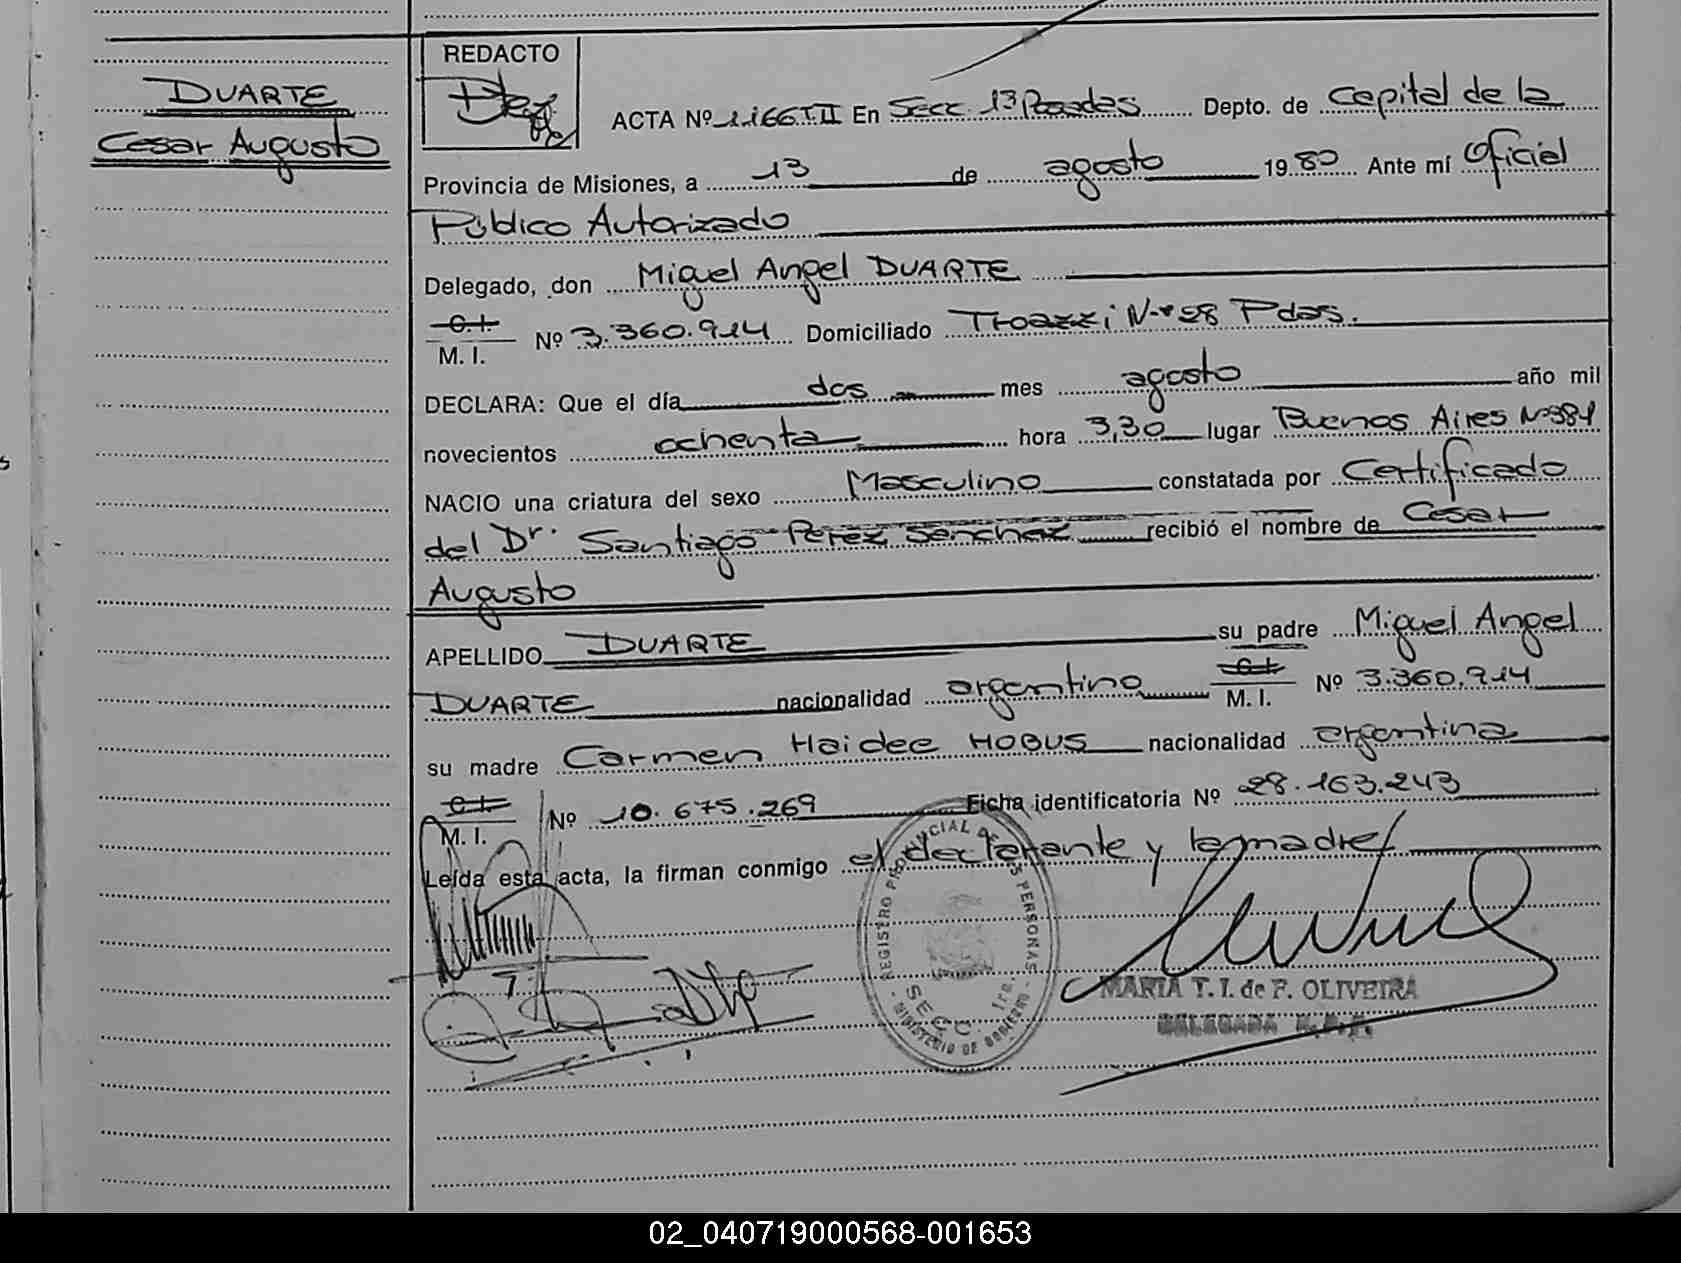 DUARTE
Cesar Augusto
REDACTO
ACTA Nº 1166 T II En Secc. 1ª Posadas Depto. de Capital de la
Provincia de Misiones, a 13 de agosto 1980 Ante mí Oficial
Público Autorizado
Delegado, don Miguel Angel DUARTE
C.I.
M. I. Nº 3.360.914 Domiciliado Nº 28 Pdas.
DECLARA: Que el día dos mes agosto año mil
novecientos ochenta hora 3,30 lugar Buenos Aires Nº 384
NACIO una criatura del sexo Masculino constatada por Certificado
del Dr. Santiago Perez Sanchez recibió el nombre de Cesar
Augusto
APELLIDO DUARTE su padre Miguel Angel
DUARTE nacionalidad argentino C.I. M. I. Nº 3.360.914
su madre Carmen Haidee HOBUS nacionalidad argentina
C.I.
M. I. Nº 10.675.269 Ficha identificatoria Nº 28.163.243
Leída esta acta, la firman conmigo el declarante y la madre
REGISTRO PROVINCIAL DE LAS PERSONAS
SECC. 1ra.
MINISTERIO DE GOBIERNO
MARIA T. I. de F. OLIVEIRA
DELEGADA R.P.P.
02_040719000568-001653